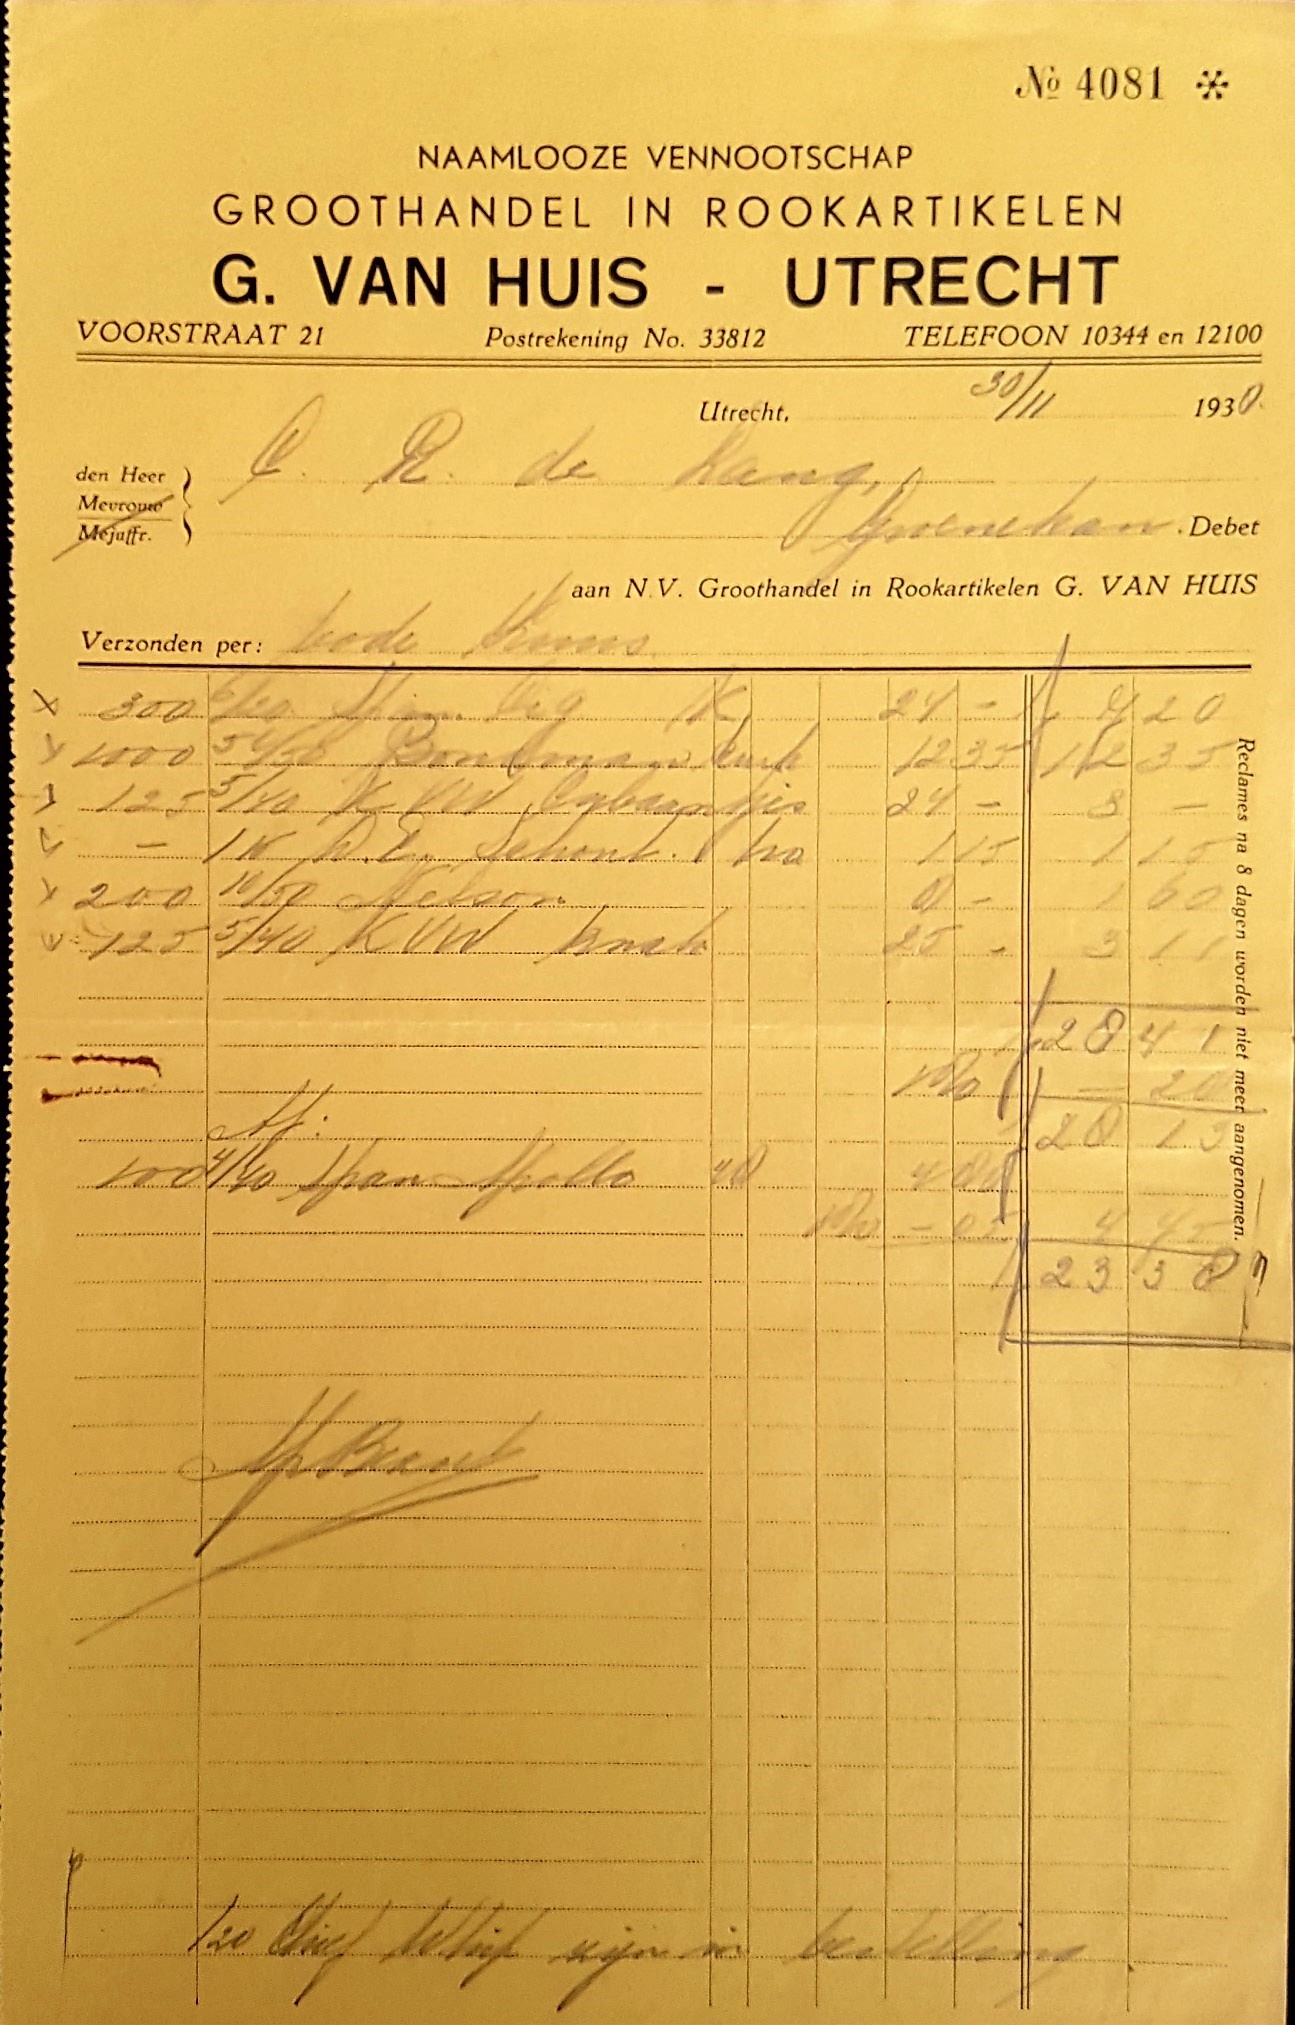 № 4081 *
NAAMLOOZE VENNOOTSCHAP
GROOTHANDEL IN ROOKARTIKELEN
G. VAN HUIS - UTRECHT
VOORSTRAAT 21 Postrekening No. 33812 TELEFOON 10344 en 12100
Utrecht, 30/11 1938.
den Heer C. R. de Lang,
Mevrouw
Mejuffr. Groenekan. Debet
aan N.V. Groothandel in Rookartikelen G. VAN HUIS
Verzonden per: bode
300 24 - 7 20
1000 12 35 12 35
125 5/40 K VW 24 - 3 -
- 1 K D.E. 1 15 1 15
200 10/50 Nelson 8 - 1 60
125 5/40 K VW 25 - 3 11
28 41
1% - 28
28 13
Af:
100 4/40 Span Apollo 48 4 80
- 05 4 75
23 38
120 zijn in bestelling.
Reclames na 8 dagen worden niet meer aangenomen.